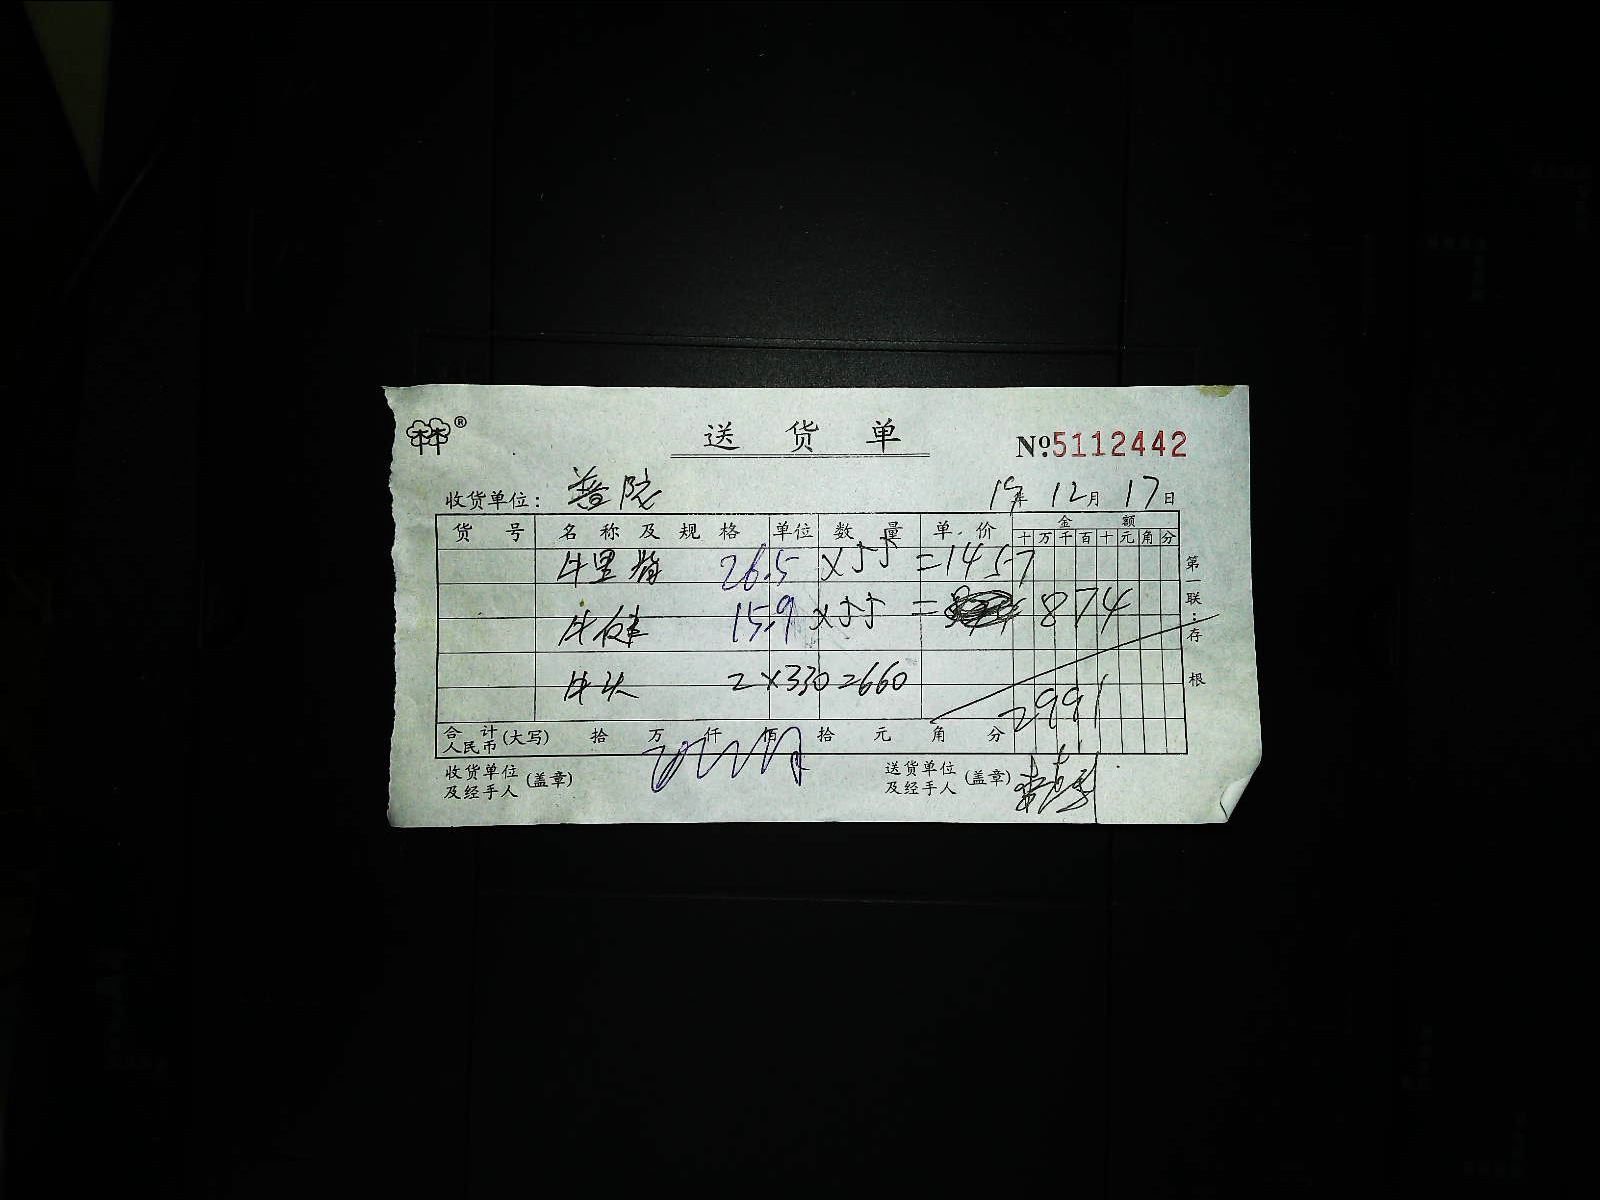 林林®
送货单
№5112442
收货单位： 普院 19年 12月 17日
货号 名称及规格 单位 数量 单价 金额
十万千百十元角分
牛里脊 26.5 ×55 =1457
牛健 15.9 ×55 = 874
牛头 2 ×330 2660
2991
合计人民币(大写) 拾 万 仟 佰 拾 元 角 分
收货单位及经手人(盖章) 送货单位及经手人(盖章)
第一联：存根